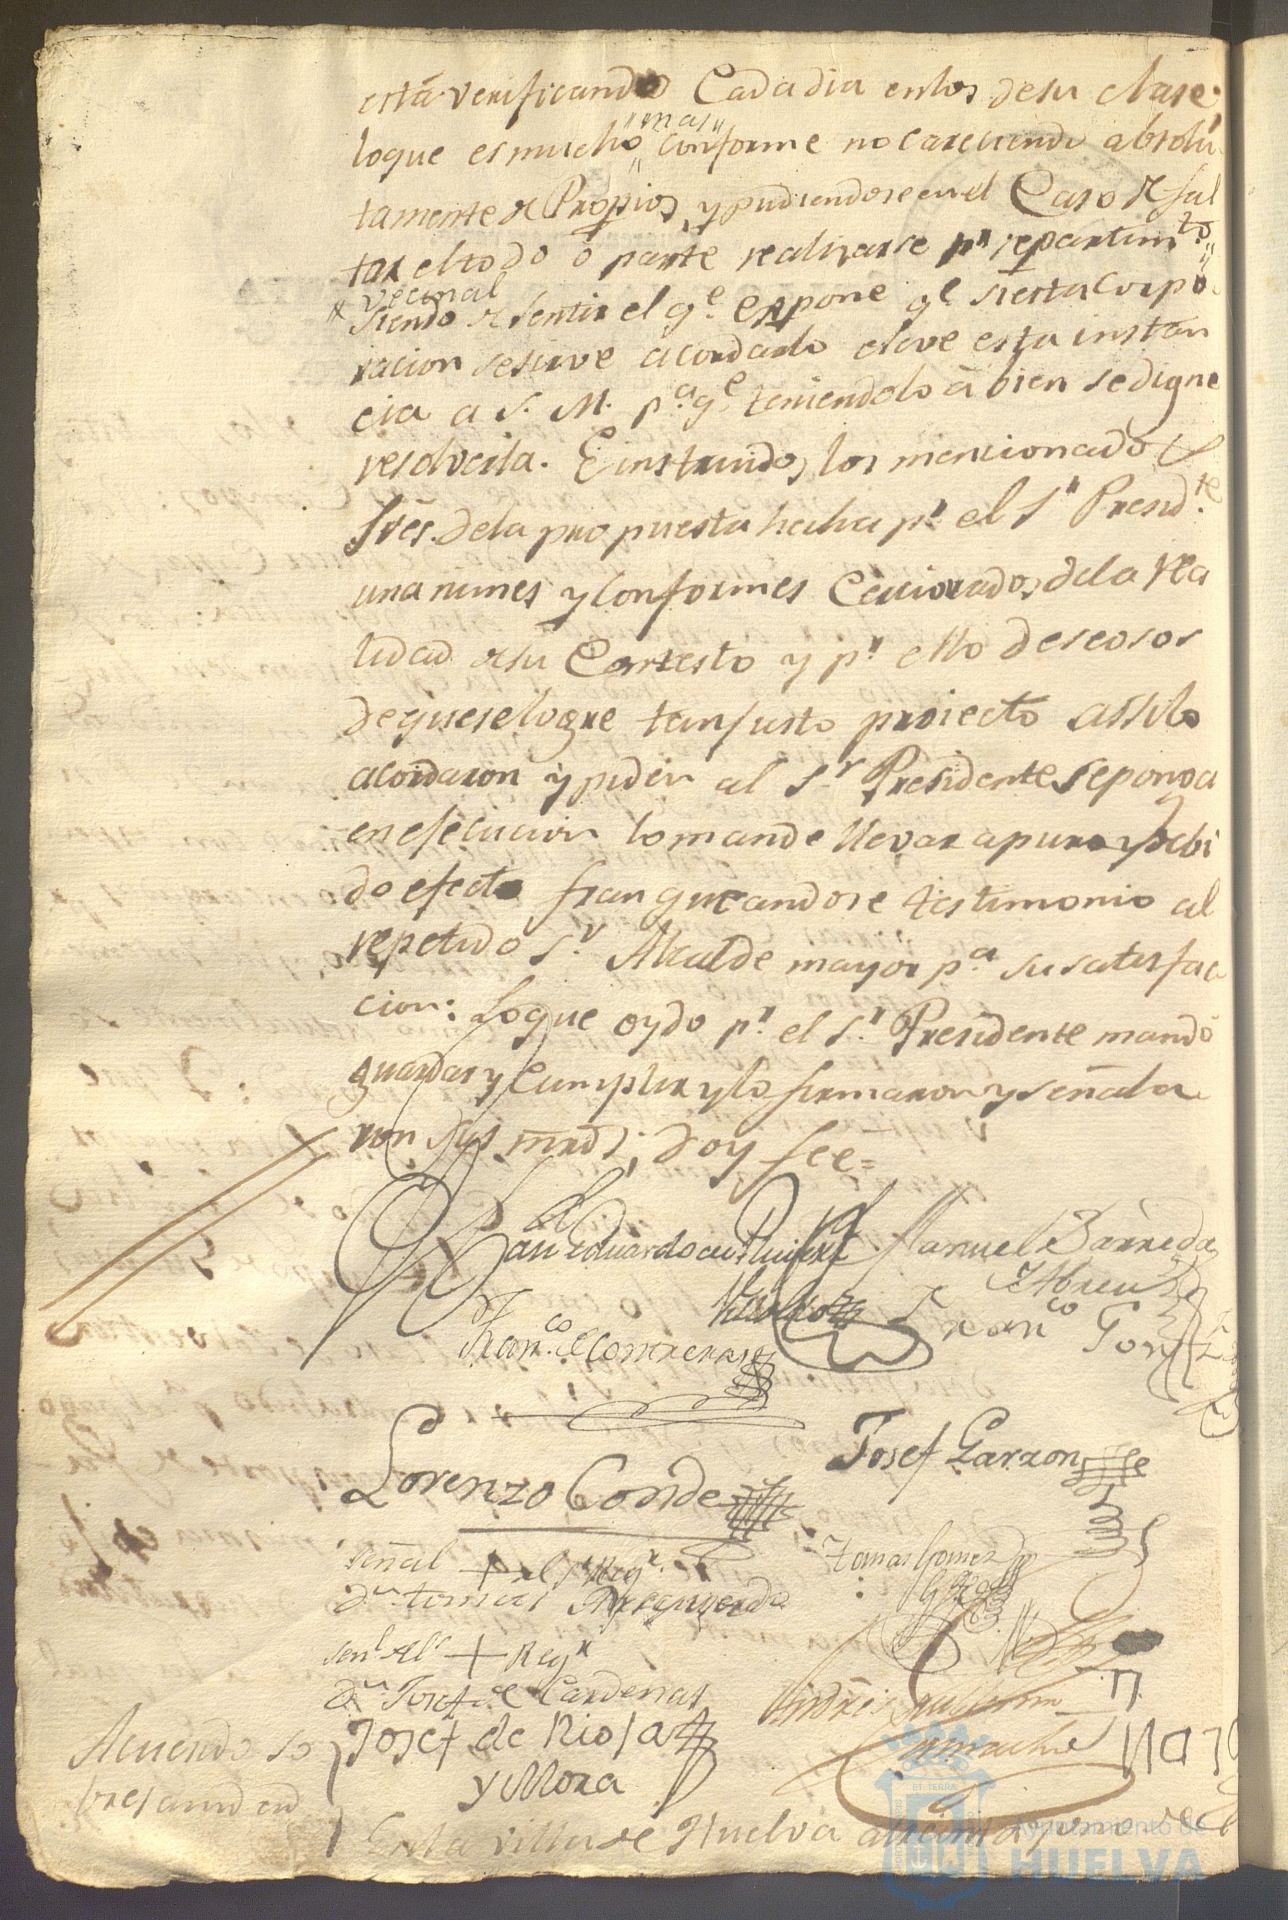 está verificando Cada dia en los de su clase
lo que es mucho "mas" conforme no careciendo absolu
tamente de Propios, y pudiendose en el Caso de fal
tar el todo ó parte realizarse pr. repartimto.
vecinal
siendo de sentir el qe. expone qe. si esta Corpo
racion se sirve acordarlo eleve esta instan
cia a S. M. pa. qe. teniendolo à bien se digne
resolverla. E instruidos los mencionados
Sres. de la propuesta hecha pr. el Sr. Presidte.
unanimes y conformes Cerciorados de la rea
lidad de su Contesto y pr. ello deseosos
de que se logre tan justo proiecto assi lo
acordaron y piden al Sr. Presidente se ponga
en ejecucion lo mande llevar a puro y debi
do efecto franqueandose testimonio al
repetido Sr. Alcalde mayor pa. su satisfac
cion: Lo que oydo pr. el Sr. Presidente mandó
guardar y Cumplir y lo firmaron y señala
ron sus mrds; doy feé=
Juan Eduardo de
Manuel Barreda
y Abreu
Franco. de Contreras
Franco Gonz
Lorenzo Conde
Josef Garzon
señal + del Sr. Regr.
Dn. tomas Arragueda
Tomas Gomez
señl del + Regr
Dn. Josef de Cardenas
Josef de Rioja
y Mora
Andrés Guillermo
Camacho
Acuerdo so
bre
En la Villa de Huelva a treinta y uno de
Ayuntamiento de
HUELVA